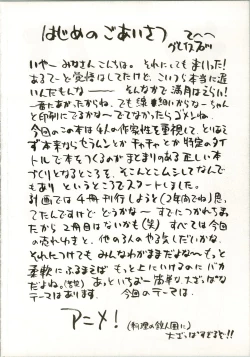 はじめのごあいさつ
てへへ
いやーみなさんこんちは。それにしてもまいった!
あるてーど覚悟はしてたけど、こいつら本当に遅
いんだもんなー そんなかで満月はえらい!
一番にあがったからね。でも線が細いからなーちゃん
と印刷にでるかなーでてなかったらゴメンね。
今回のこの本は4人の作家性を重視して、とりあえ
ず本来ならもうドンとかチャチャとか特定のタイ
トルで本をつくるのがまとまりのある正しい本
づくりとなるところを、そこんとこムシしてなんで
もあり というところでスタートしました。
計画では4冊刊行しようと(2年内でね)思っ
てたんですけど どうかなー すでにつかれちゃっ
たから2冊目はないかも(笑) すべては今回
の売れゆきと、他の3人のやる気しだいかな。
それにつけてもみんなわがままだよなーも
柔軟にふるまえば もっと上にいけるのにバカ
だよね。(苦笑) あっというまー 簡単な大ざっぱな
テーマはあります。 今回のテーマは、
アニメ!
(料理の鉄人風に)
大ざっぱすぎるぞー!!